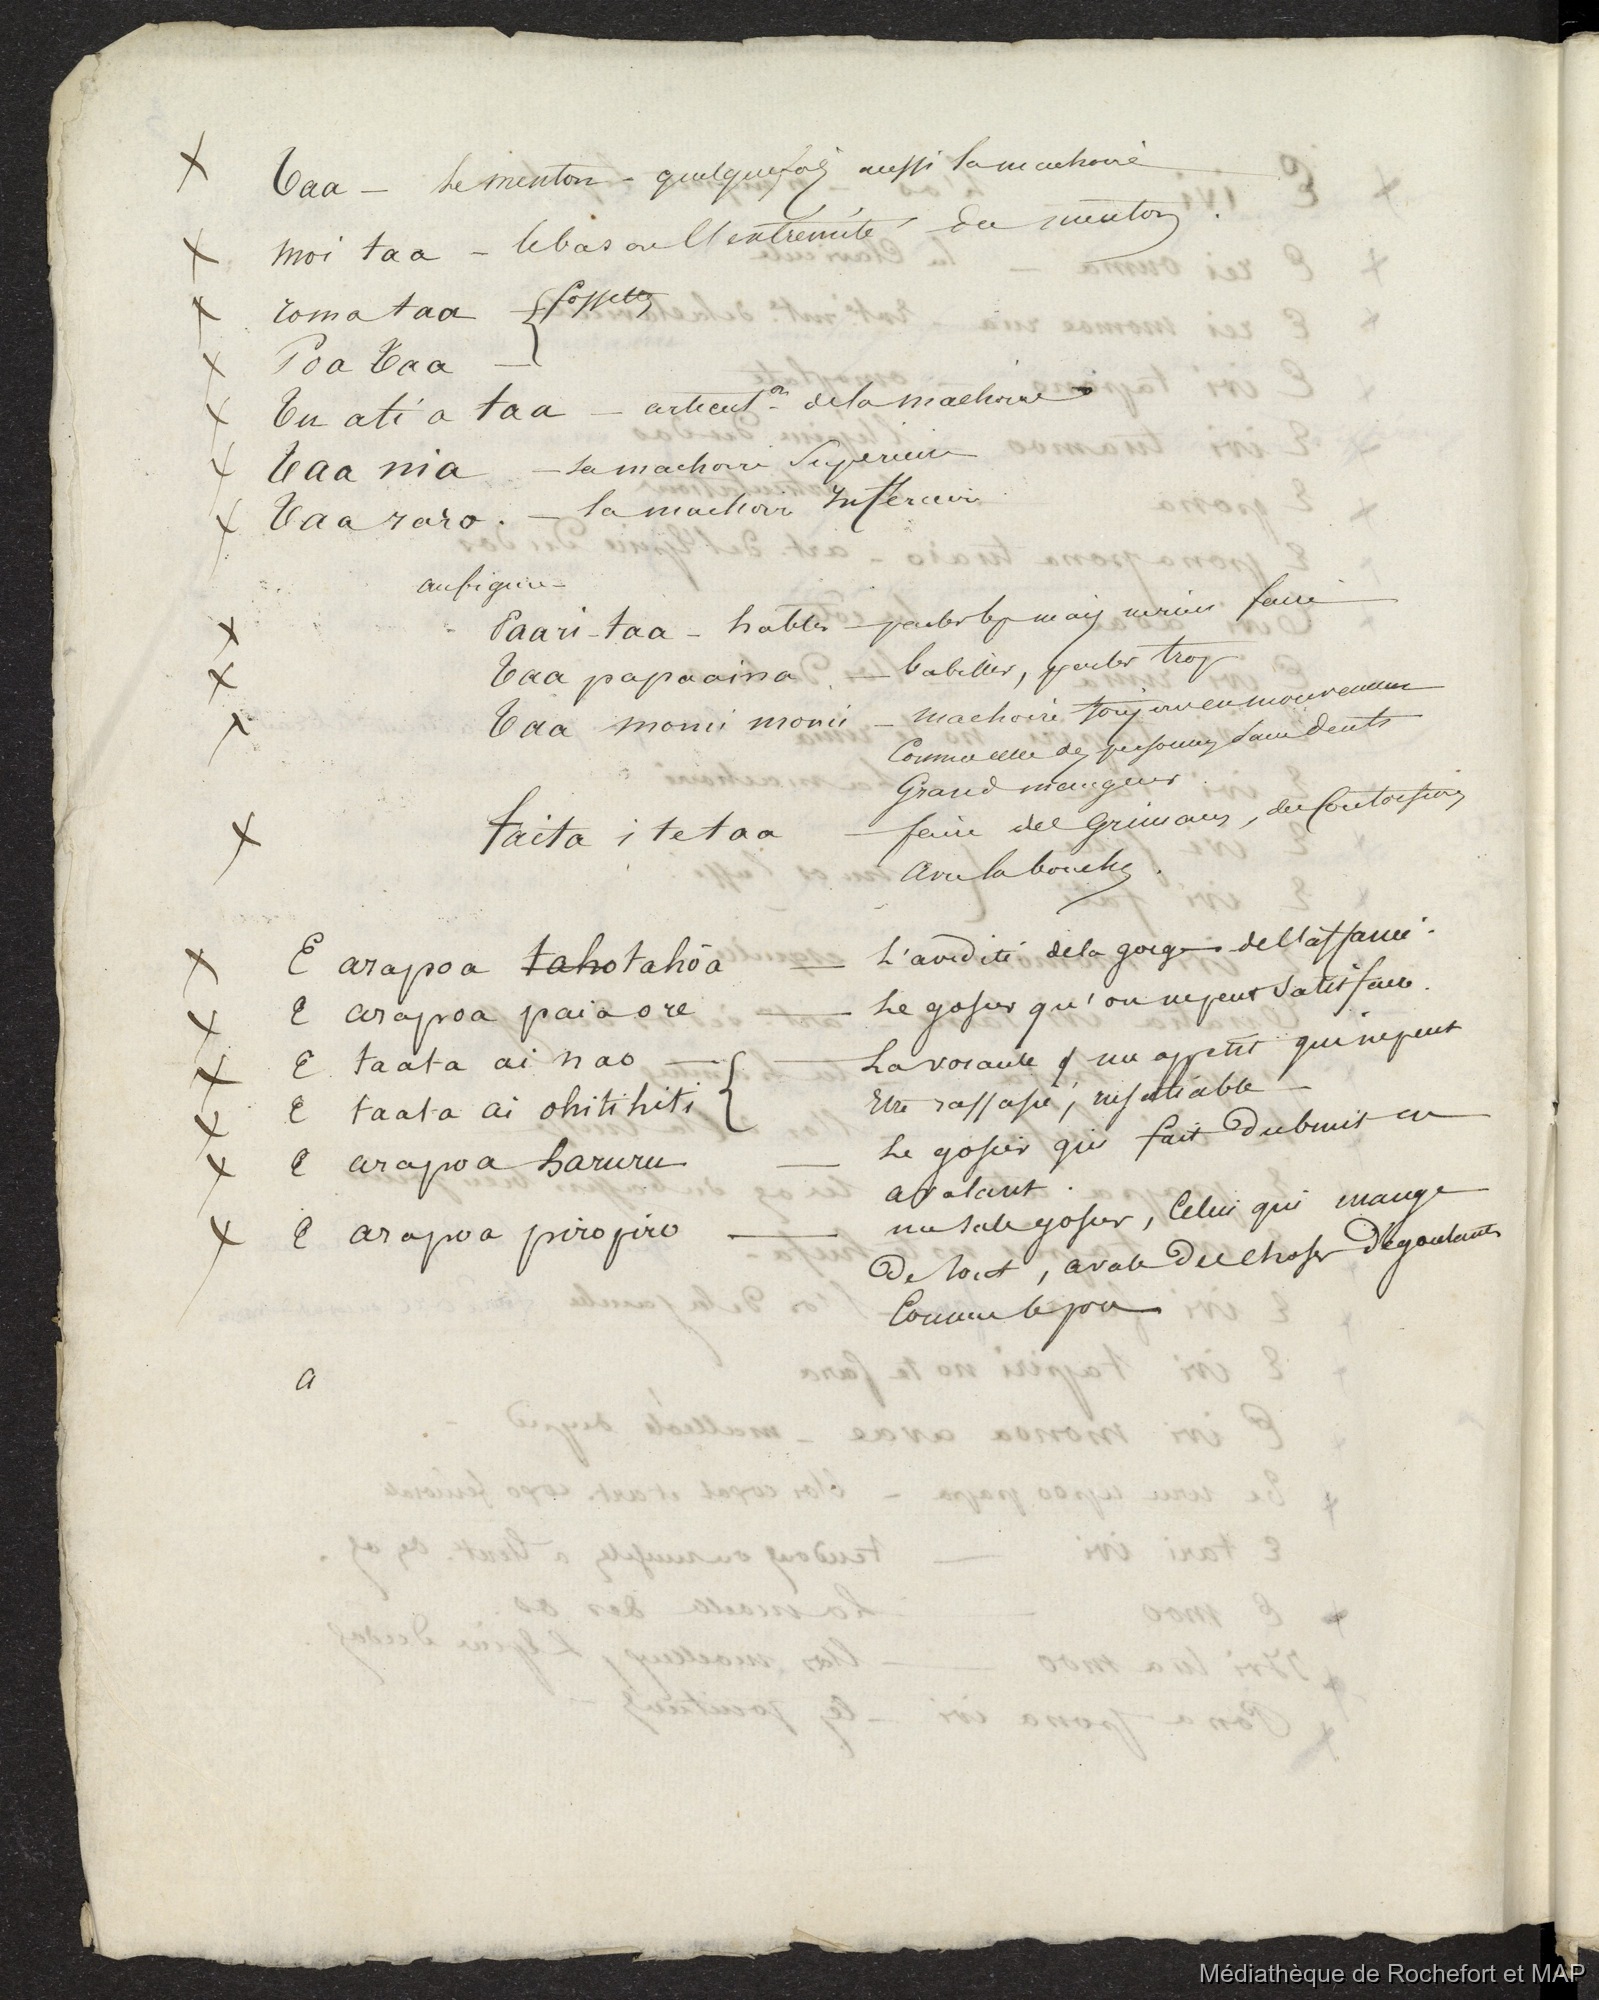 x Taa — Le menton - quelquefois aussi la machoire
x moi taa - le bas ou l'extrémité du menton.
x roma taa — { fossettes
x Poa Taa —
x Tu ati a taa — articul.on de la machoire
x Taa nia — la machoire Supérieure
x Taa raro. — la machoire Inferieure
au figuré -
x Paari-taa - habler - parler mais ne rien faire
x Taa papaaina. — babiller, parler trop
x Taa momi momi - machoire toujours en mouvement
Comme celle des personnes sans Dents
Grand mangeur.
x faita i te taa — faire des Grimaces, des Contorsions
avec la bouche.
x E arapoa tahotahōa — L'avidité de la gorge de l'affamé.
x E arapoa paia ore — Le gosier qu'on ne peut satisfaire.
x E taata ai nao — { — La voracité d'un appetit qui ne peut
x E taata ai ohitihiti Etre rassasié, insatiable —
x E arapoa haruru — Le gosier qui fait Du bruit en
avalant.
x E arapoa piropiro — un sale gosier, Celui qui mange
De tout, avale Des choses Dégoutantes
Comme le pou
a
Médiathèque de Rochefort et MAP